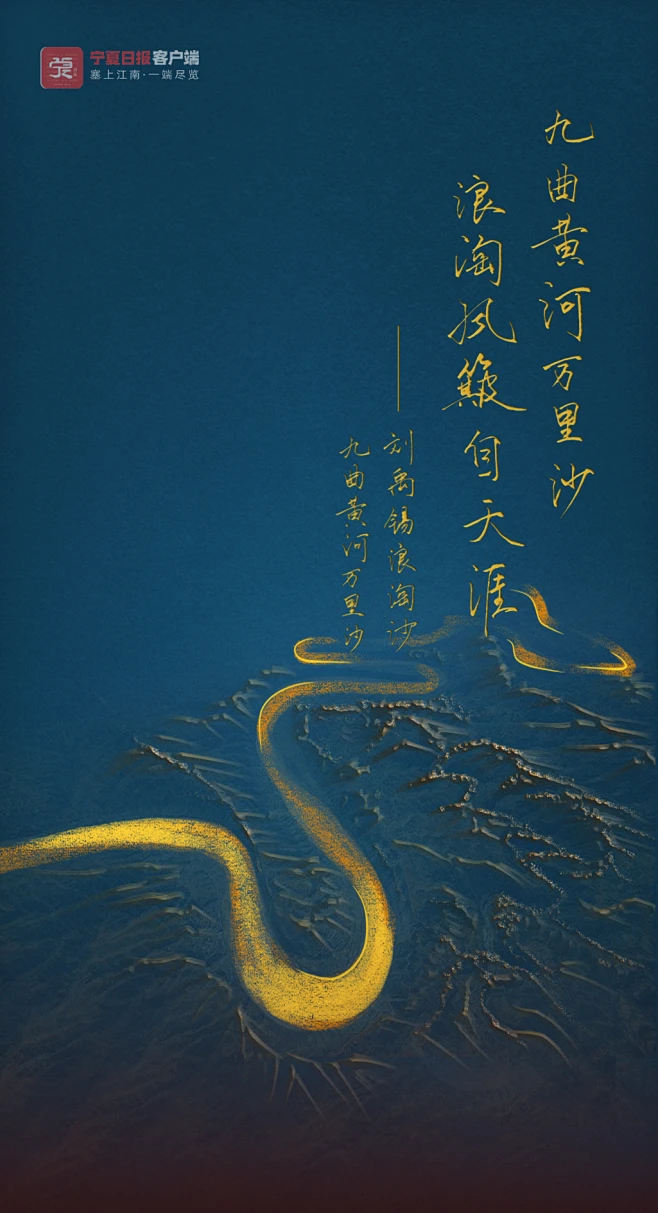 宁夏日报客户端
塞上江南·一端尽览
九曲黄河万里沙
浪淘风簸自天涯
——刘禹锡浪淘沙
九曲黄河万里沙